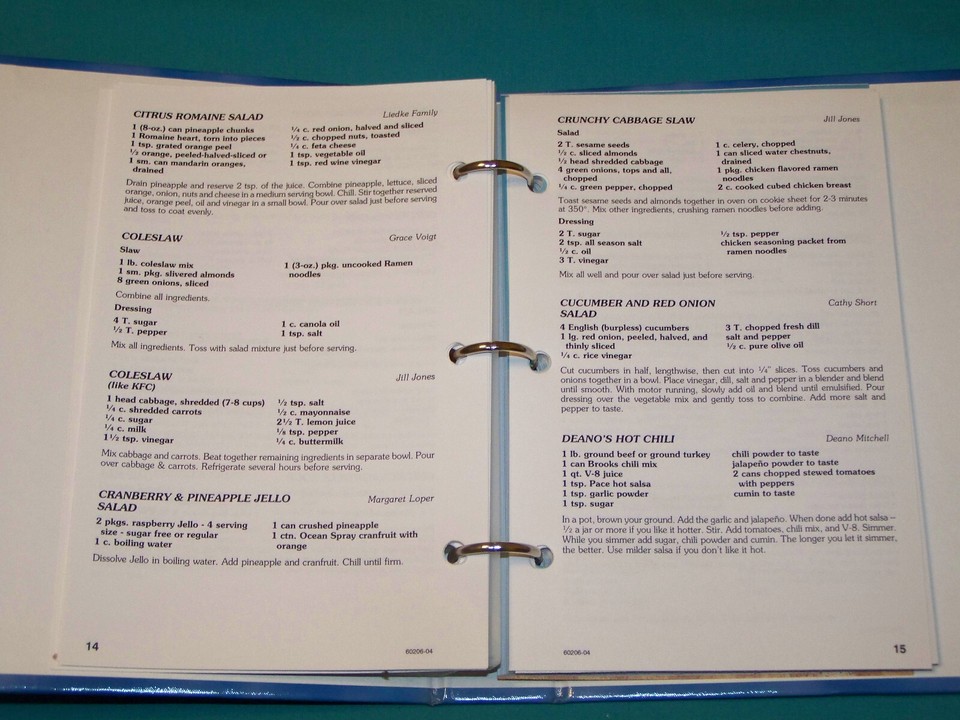 CITRUS ROMAINE SALAD Liedke Family
1 (8-oz.) can pineapple chunks
1 Romaine heart, torn into pieces
1 tsp. grated orange peel
½ orange, peeled-halved-sliced or
1 sm. can mandarin oranges,
drained
¼ c. red onion, halved and sliced
½ c. chopped nuts, toasted
¼ c. feta cheese
1 tsp. vegetable oil
1 tsp. red wine vinegar
Drain pineapple and reserve 2 tsp. of the juice. Combine pineapple, lettuce, sliced
orange, onion, nuts and cheese in a medium serving bowl. Chill. Stir together reserved
juice, orange peel, oil and vinegar in a small bowl. Pour over salad just before serving
and toss to coat evenly.
COLESLAW Grace Voigt
Slaw
1 lb. coleslaw mix
1 sm. pkg. slivered almonds
8 green onions, sliced
1 (3-oz.) pkg. uncooked Ramen
noodles
Combine all ingredients.
Dressing
4 T. sugar
½ T. pepper
1 c. canola oil
1 tsp. salt
Mix all ingredients. Toss with salad mixture just before serving.
COLESLAW Jill Jones
(like KFC)
1 head cabbage, shredded (7-8 cups)
¼ c. shredded carrots
¼ c. sugar
¼ c. milk
1½ tsp. vinegar
½ tsp. salt
½ c. mayonnaise
2½ T. lemon juice
⅛ tsp. pepper
¼ c. buttermilk
Mix cabbage and carrots. Beat together remaining ingredients in separate bowl. Pour
over cabbage & carrots. Refrigerate several hours before serving.
CRANBERRY & PINEAPPLE JELLO Margaret Loper
SALAD
2 pkgs. raspberry Jello - 4 serving
size - sugar free or regular
1 c. boiling water
1 can crushed pineapple
1 ctn. Ocean Spray cranfruit with
orange
Dissolve Jello in boiling water. Add pineapple and cranfruit. Chill until firm.
14 60206-04
CRUNCHY CABBAGE SLAW Jill Jones
Salad
2 T. sesame seeds
½ c. sliced almonds
½ head shredded cabbage
4 green onions, tops and all,
chopped
¼ c. green pepper, chopped
1 c. celery, chopped
1 can sliced water chestnuts,
drained
1 pkg. chicken flavored ramen
noodles
2 c. cooked cubed chicken breast
Toast sesame seeds and almonds together in oven on cookie sheet for 2-3 minutes
at 350°. Mix other ingredients, crushing ramen noodles before adding.
Dressing
2 T. sugar
2 tsp. all season salt
½ c. oil
3 T. vinegar
½ tsp. pepper
chicken seasoning packet from
ramen noodles
Mix all well and pour over salad just before serving.
CUCUMBER AND RED ONION Cathy Short
SALAD
4 English (burpless) cucumbers
1 lg. red onion, peeled, halved, and
thinly sliced
¼ c. rice vinegar
3 T. chopped fresh dill
salt and pepper
½ c. pure olive oil
Cut cucumbers in half, lengthwise, then cut into ¼" slices. Toss cucumbers and
onions together in a bowl. Place vinegar, dill, salt and pepper in a blender and blend
until smooth. With motor running, slowly add oil and blend until emulsified. Pour
dressing over the vegetable mix and gently toss to combine. Add more salt and
pepper to taste.
DEANO'S HOT CHILI Deano Mitchell
1 lb. ground beef or ground turkey
1 can Brooks chili mix
1 qt. V-8 juice
1 tsp. Pace hot salsa
1 tsp. garlic powder
1 tsp. sugar
chili powder to taste
jalapeño powder to taste
2 cans chopped stewed tomatoes
with peppers
cumin to taste
In a pot, brown your ground. Add the garlic and jalapeño. When done add hot salsa –
½ a jar or more if you like it hotter. Stir. Add tomatoes, chili mix, and V-8. Simmer.
While you simmer add sugar, chili powder and cumin. The longer you let it simmer,
the better. Use milder salsa if you don't like it hot.
60206-04 15